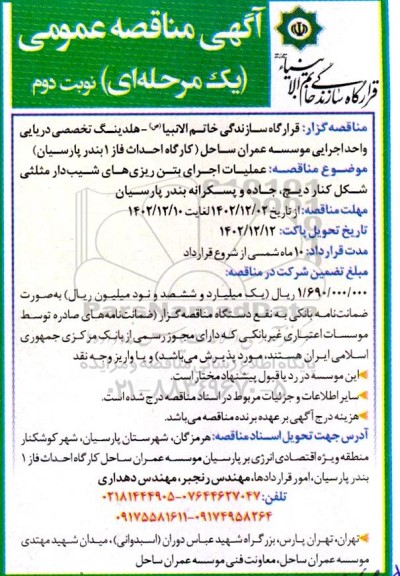 آگهی مناقصه عمومی
(یک مرحله‌ای) نوبت دوم
قرارگاه سازندگی خاتم الانبیاء
مناقصه گزار: قرارگاه سازندگی خاتم الانبیا (ص) - هلدینگ تخصصی دریایی
واحد اجرایی موسسه عمران ساحل (کارگاه احداث فاز ۱ بندر پارسیان)
موضوع مناقصه: عملیات اجرای بتن ریزی‌های شیب‌دار مثلثی
شکل کنار دیچ، جاده و پسکرانه بندر پارسیان
مهلت مناقصه: از تاریخ ۱۴۰۲/۱۲/۰۲ لغایت ۱۴۰۲/۱۲/۱۰
تاریخ تحویل پاکت: ۱۴۰۲/۱۲/۱۲
مدت قرارداد: ۱۰ ماه شمسی از شروع قرارداد
مبلغ تضمین شرکت در مناقصه:
۱/۶۹۰/۰۰۰/۰۰۰ ریال (یک میلیارد و ششصد و نود میلیون ریال) به‌صورت
ضمانت‌نامه بانکی به نفع دستگاه مناقصه گزار (ضمانت‌نامه‌های صادره توسط
موسسات اعتباری غیربانکی که دارای مجوز رسمی از بانک مرکزی جمهوری
اسلامی ایران هستند، مورد پذیرش می‌باشد) و یا واریز وجه نقد
این موسسه در رد یا قبول پیشنهاد مختار است.
سایر اطلاعات و جزئیات مربوط در اسناد مناقصه درج شده است.
هزینه درج آگهی بر عهده برنده مناقصه می‌باشد.
آدرس جهت تحویل اسناد مناقصه: هرمزگان، شهرستان پارسیان، شهر کوشکنار
منطقه ویژه اقتصادی انرژی بر پارسیان موسسه عمران ساحل کارگاه احداث فاز ۱
بندر پارسیان، امور قراردادها، مهندس رنجبر، مهندس دهداری
تلفن: ۰۷۶۴۴۶۲۷۰۴۷-۰۲۱۸۱۴۴۴۹۰۵
۰۹۱۷۴۹۵۸۲۶۴-۰۹۱۷۵۵۸۱۶۱۱
تهران، تهران پارس، بزرگراه شهید عباس دوران (استیدوانی)، میدان شهید مهتدی
موسسه عمران ساحل، معاونت فنی موسسه عمران ساحل